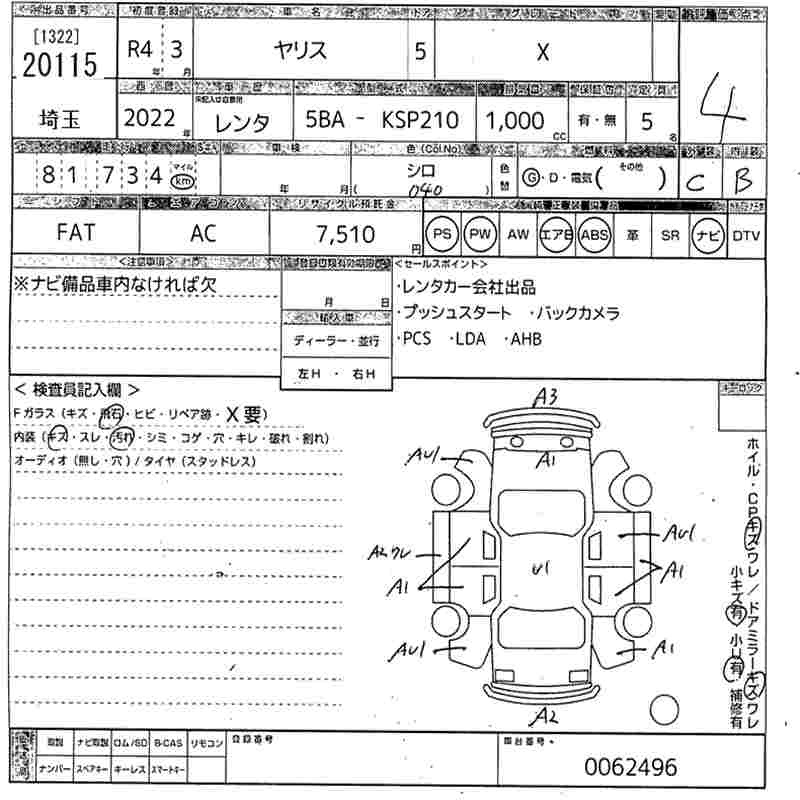 出品番号 初度登録 車名 ドア グレード 評価点
[1322]
20115 R4 年 3 月 ヤリス 5 X 4
西暦 車歴 型式 排気量 定員
埼玉 2022 年 レンタ 5BA - KSP210 1,000 cc 有・無 5 名
車検 色(Col.No) 燃料 外装 内装
81,734 マイル km 年 月 シロ 040 色替 G・D・電気( その他 ) C B
シフト エアコン リサイクル預託金
FAT AC 7,510 円 PS PW AW エアB ABS 革 SR ナビ DTV
<注意事項> <セールスポイント>
※ナビ備品車内なければ欠 月 日 ・レンタカー会社出品
輸入車 ・プッシュスタート ・バックカメラ
ディーラー・並行 ・PCS ・LDA ・AHB
左H ・ 右H
< 検査員記入欄 >
Fガラス(キズ・飛石・ヒビ・リペア跡・X要)
内装(キズ・スレ・汚れ・シミ・コゲ・穴・キレ・破れ・割れ)
オーディオ(無し・穴)/タイヤ(スタッドレス)
A3
AU1 A1
A2ワレ U1 AU1
A1 A1
AU1 A1
A2
キーロック
ホイル・CPキズワレ/ドアミラーキズワレ
小キズ有 小U有 補修有
取説 ナビ取説 ロム/SD B-CAS リモコン 登録番号 車台番号
ナンバー スペアキー キーレス スマートキー 0062496